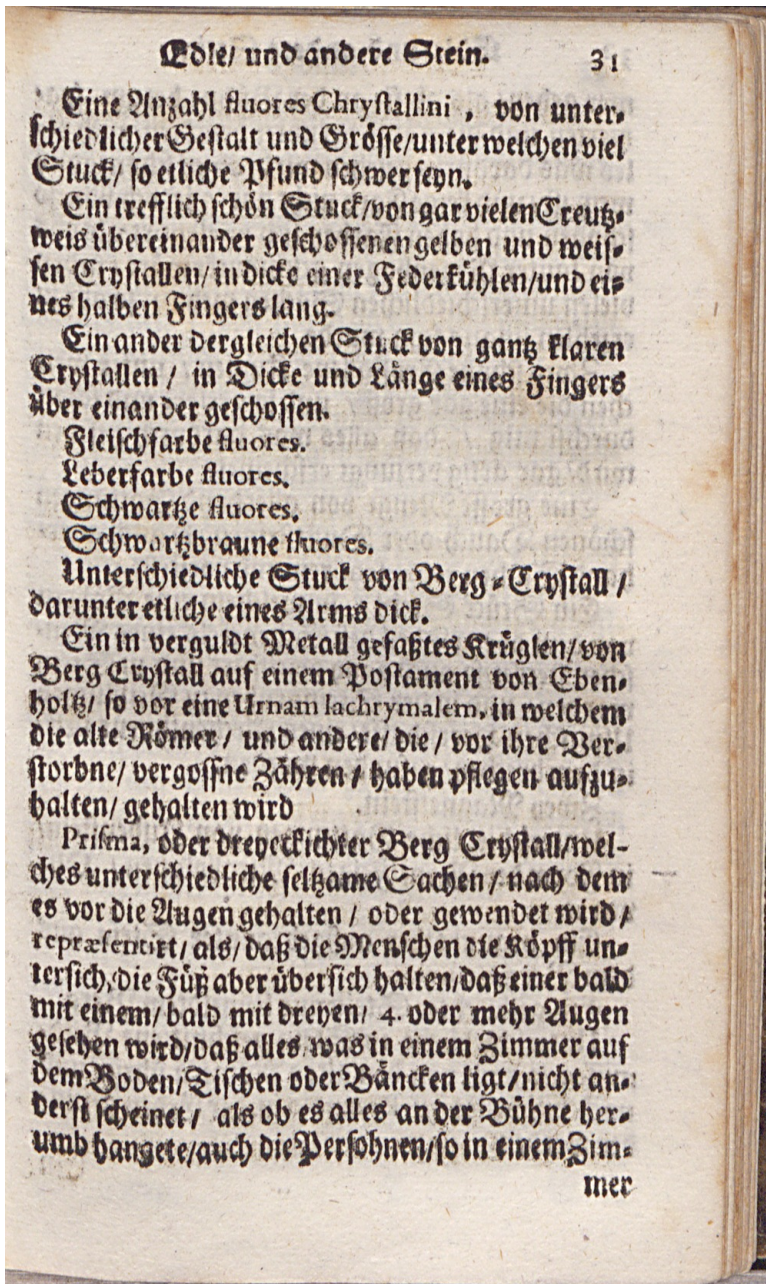 Edle/ und andere Stein. 31
Eine Anzahl fluores Chrystallini, von unter-
schiedlicher Gestalt und Grösse/unter welchen viel
Stuck/ so etliche Pfund schwer seyn.
Ein trefflich schön Stuck/von gar vielen Creutz-
weis übereinander geschossenen gelben und weis-
sen Crystallen/in dicke einer Federkühlen/und ei-
nes halben Fingers lang.
Ein ander dergleichen Stuck von gantz klaren
Crystallen / in Dicke und Länge eines Fingers
über einander geschossen.
Fleischfarbe fluores.
Leberfarbe fluores.
Schwartze fluores.
Schwartzbraune fluores.
Unterschiedliche Stuck von Berg-Crystall /
darunter etliche eines Arms dick.
Ein in verguldt Metall gefaßtes Krüglen/von
Berg Crystall auf einem Postament von Eben-
holtz/ so vor eine Urnam lachrymalem, in welchem
die alte Römer/ und andere/ die/ vor ihre Ver-
storbne/ vergossne Zähren / haben pflegen aufzu-
halten/ gehalten wird
Prisma, oder dreyeckichter Berg Crystall/wel-
ches unterschiedliche seltzame Sachen/ nach dem
es vor die Augen gehalten / oder gewendet wird /
repræsentirt/ als/ daß die Menschen die Köpff un-
tersich/die Füß aber übersich halten/daß einer bald
mit einem/ bald mit dreyen/ 4. oder mehr Augen
gesehen wird/daß alles was in einem Zimmer auf
dem Boden/Tischen oder Bäncken ligt/nicht an-
derst scheinet/ als ob es alles an der Bühne her-
umb hangete/auch die Persohnen/so in einem Zim-
mer